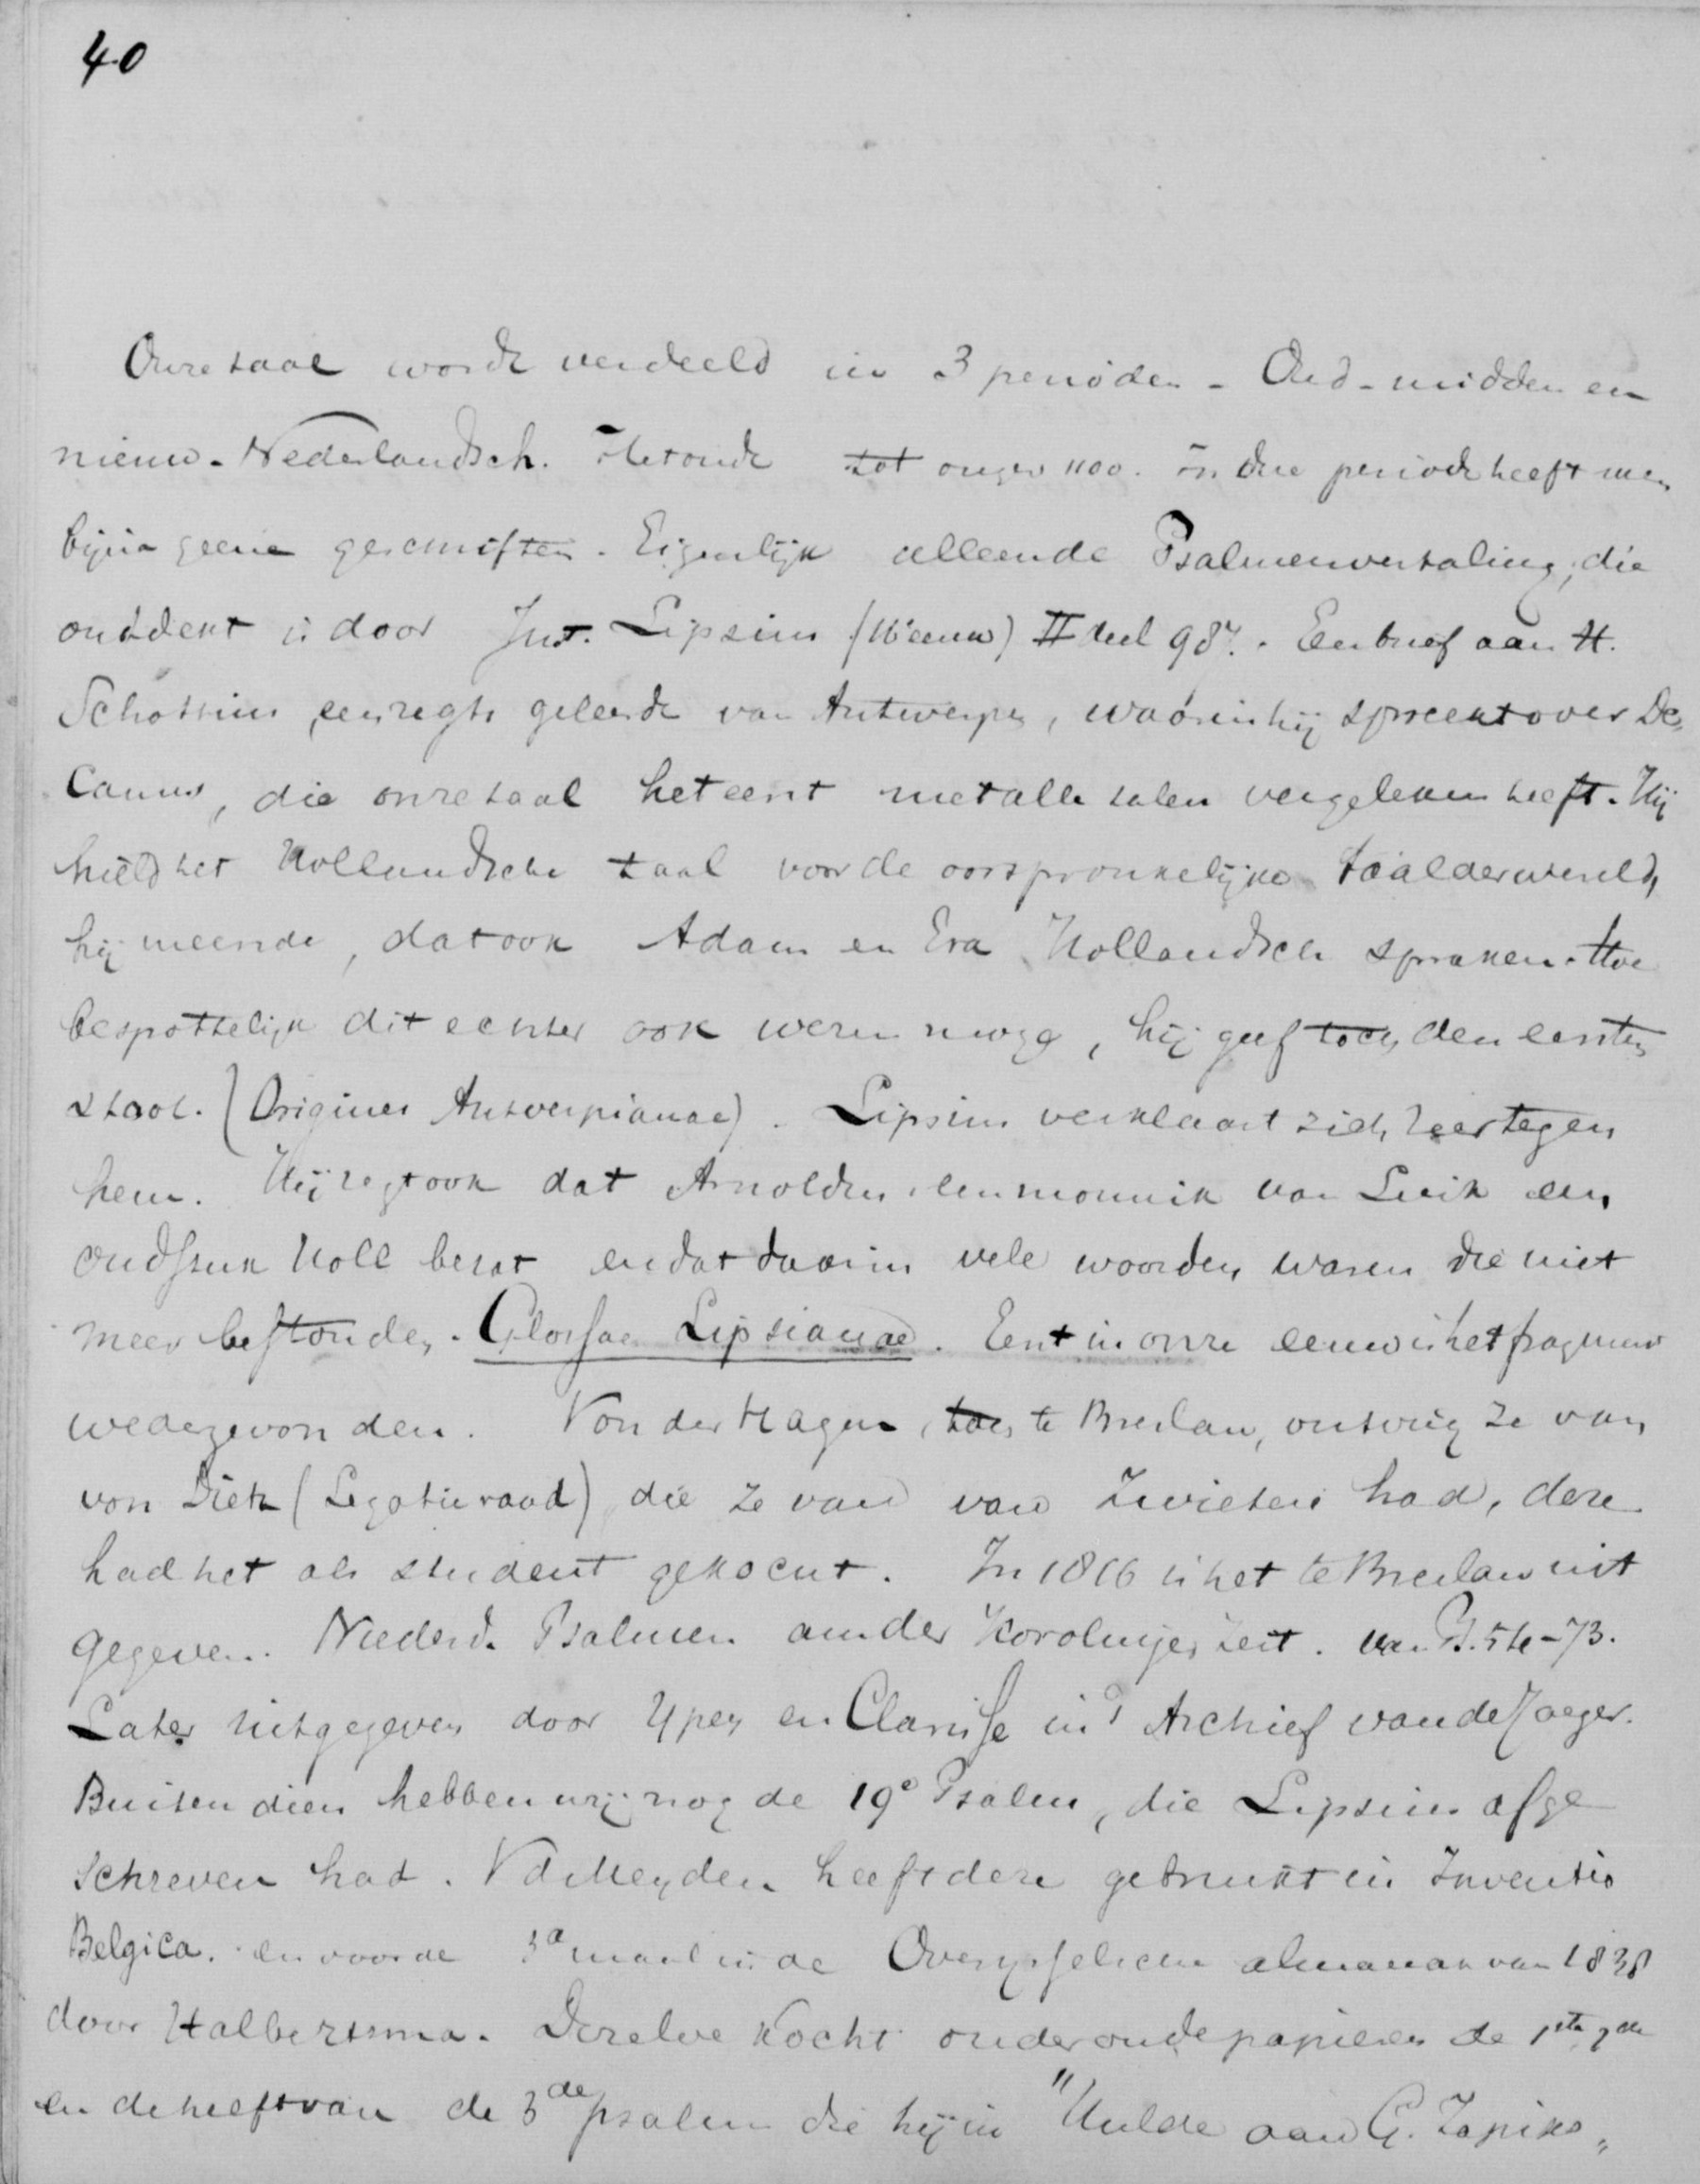 40
Onze taal wordt verdeeld in 3 perioden - Oud- midden en
nieuw-Nederlandsch. Het oude tot ongev 1100. In die periode heeft men
bijna geene geschriften. Eigenlijk alleen de Psalmenvertaling, die
ontdekt is door Just. Lipsius (16e eeuw) II deel 987. Een brief aan H.
Schottius, een regtsgeleerde van Antwerpen, waarin hij spreekt over Be
Canus, die onze taal het eerst met alle talen vergeleken heeft. Hij
hield het Hollandsche taal voor de oorspronkelijke taal der wereld,
hij meende, dat ook Adam en Eva Hollandsch spraken. Hoe
bespottelijk dit echter ook wezen moge, hij geeft toch den eersten
stoot. (Origines Antwerpianae). Lipsius verklaart zich zeer tegen
hem. Hij zegt ook dat Arnoldus, een monnik van Luik een
oud stuk Holl bezat en dat daarin vele woorden waren die niet
meer bestonden. Glossae Lipsianae. Eerst in onze eeuw is het fragment
wedergevonden. Von der Hagen, toen te Breslau, ontving ze van
von Dietz (Legatieraad) die ze van van Zwieten had, deze
had het als student gekocht. In 1816 is het te Breslau uit
gegeven. Niederd. Psalmen aus der Karolinger Zeit. van Ps. 54-73.
Later uitgegeven door Ypey en Clarisse in 't Archief van de Jager.
Buitendien hebben wij nog de 19e Psalm, die Lipsius afge
schreven had. Vd Meyden heeft deze gedrukt in Inventio
Belgica. en voor de 3e maal in de Overijsselschen almanak van 1838
door Halbertsma. Dezelve kocht onder oude papieren de 1ste 2de
en de helft van de 3de psalm die hij in "Hulde aan G. Japiks"